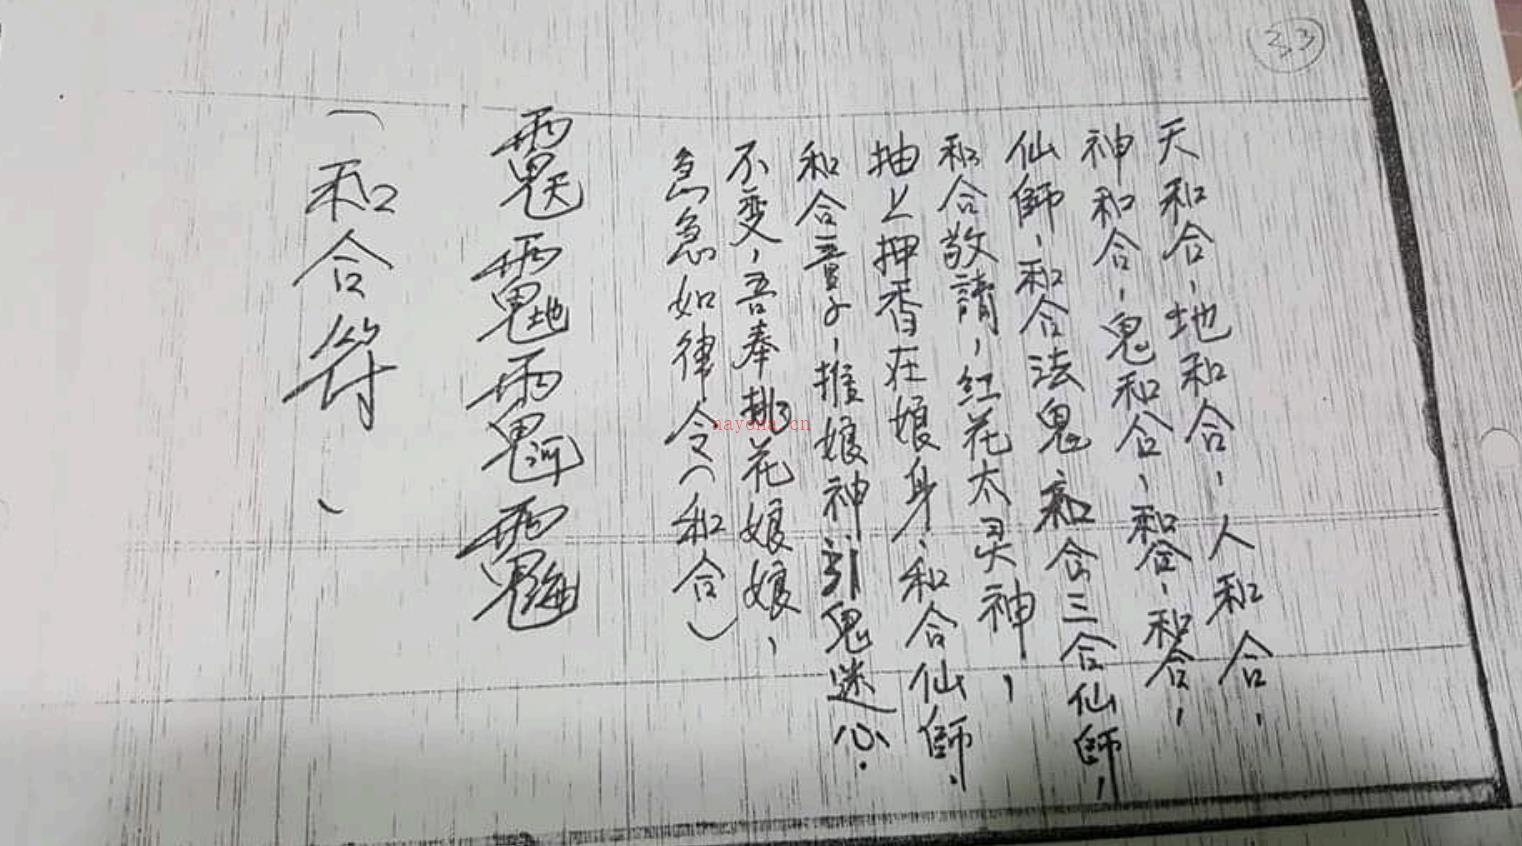 33
天和合，地和合，人和合，
神和合，鬼和合，和合，和合，
仙師，和合法鬼和合三合仙師，
和合敬請，紅花太灵神，
抽上押香在娘身，和合仙師，
和合童子，推娘神引鬼迷心。
不变，吾奉桃花娘娘，
急急如律令（和合）
（和合符）
nayona.cn